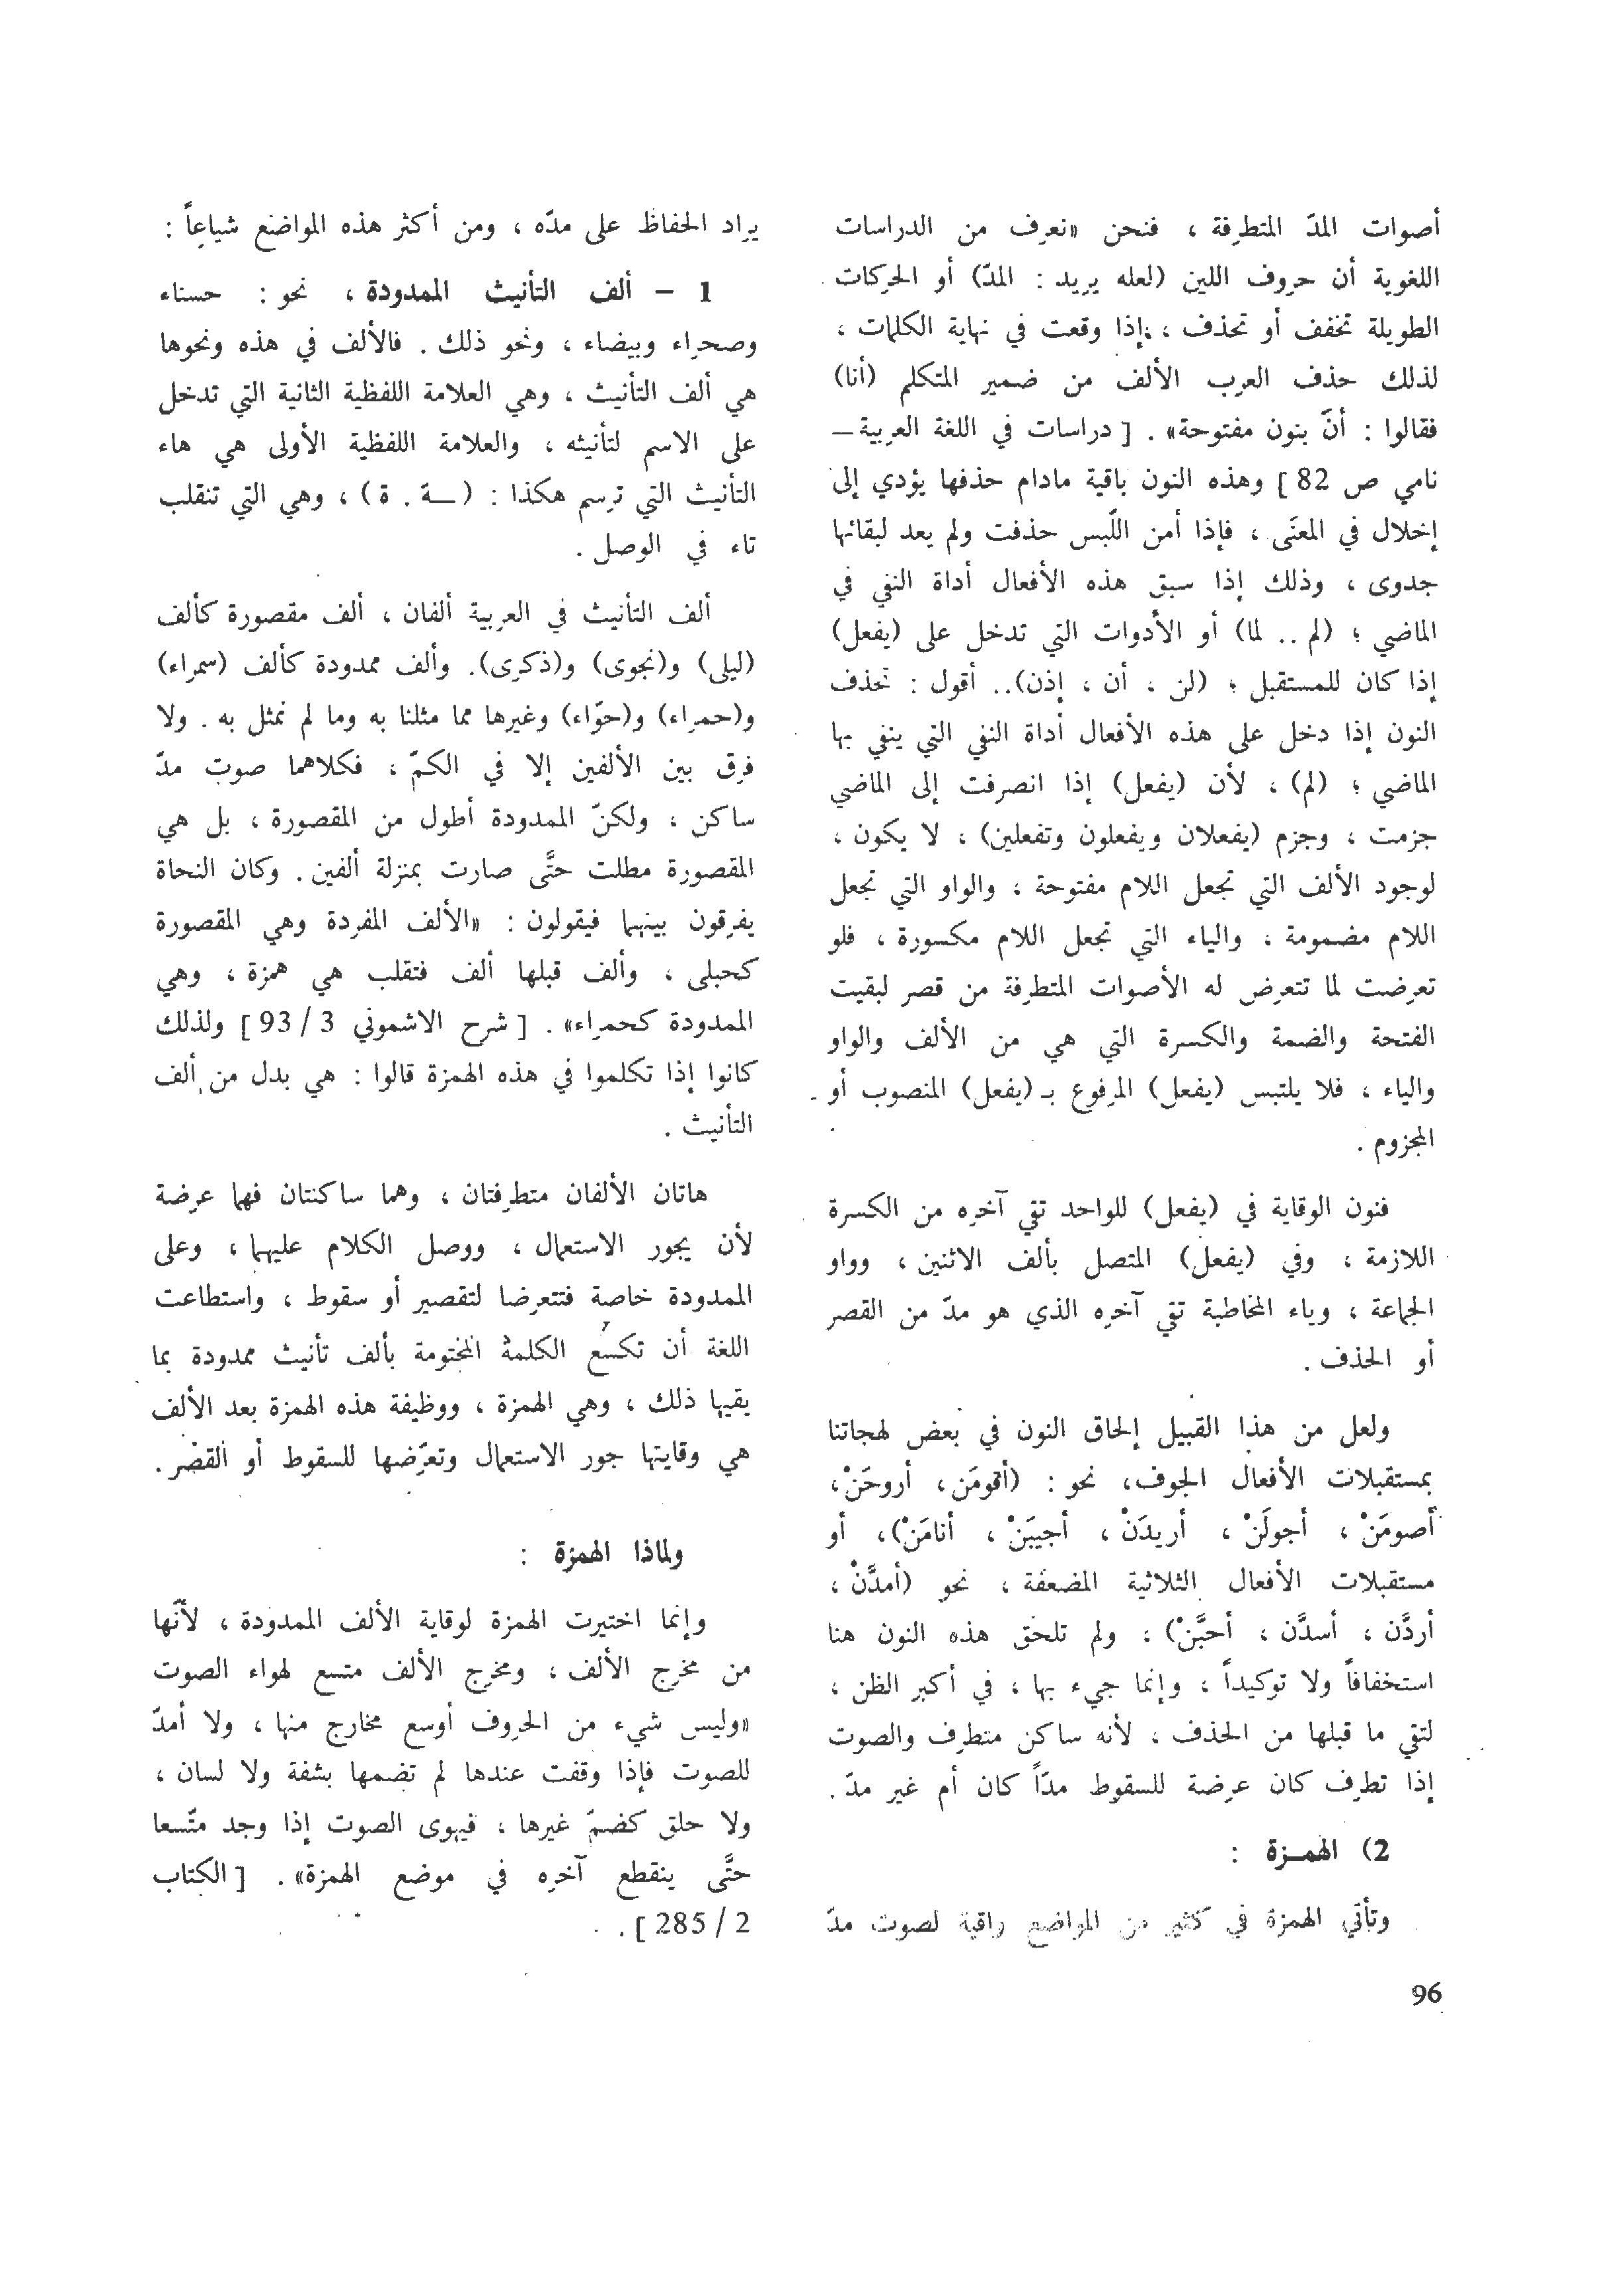 أصوات المدّ المتطرفة ، فنحن «نعرف من الدراسات
اللغوية أن حروف اللين (لعله يريد : المدّ) أو الحركات
الطويلة تخفف أو تحذف ، إذا وقعت في نهاية الكلمات ،
لذلك حذف العرب الألف من ضمير المتكلم (أنا)
فقالوا : أنّ بنون مفتوحة» . [ دراسات في اللغة العربية ــ
نامي ص 82 ] وهذه النون باقية مادام حذفها يؤدي إلى
إخلال في المعنَى ، فإذا أمن اللّبس حذفت ولم يعد لبقائها
جدوى ، وذلك إذا سبق هذه الأفعال أداة النفي في
الماضي ؛ (لم .. لما) أو الأدوات التي تدخل على (يفعل)
إذا كان للمستقبل ؛ (لن ، أن ، إذن).. أقول : تحذف
النون إذا دخل على هذه الأفعال أداة النفي التي ينفي بها
الماضي ؛ (لم) ، لأن (يفعل) إذا انصرفت إلى الماضي
جزمت ، وجزم (يفعلان ويفعلون وتفعلين) ، لا يكون ،
لوجود الألف التي تجعل اللام مفتوحة ، والواو التي تجعل
اللام مضمومة ، والياء التي تجعل اللام مكسورة ، فلو
تعرضت لما تتعرض له الأصوات المتطرفة من قصر لبقيت
الفتحة والضمة والكسرة التي هي من الألف والواو
والياء ، فلا يلتبس (يفعل) المرفوع بـ (يفعل) المنصوب أو
المجزوم .
فنون الوقاية في (يفعل) للواحد تقي آخره من الكسرة
اللازمة ، وفي (يفعل) المتصل بألف الاثنين ، وواو
الجماعة ، وياء المخاطبة تقي آخره الذي هو مدّ من القصر
أو الحذف .
ولعل من هذا القبيل إلحاق النون في بعض لهجاتنا
بمستقبلات الأفعال الجوف، نحو : (أقومَن، أروحَنْ،
أصومَنْ ، أجولَنْ ، أريدَنْ ، أجيبَنْ ، أنامَنْ)، أو
مستقبلات الأفعال الثلاثية المضعفة ، نحو (أمدَّنْ ،
أردَّن ، أسدَّن ، أحبَّنْ) ، ولم تلحق هذه النون هنا
استخفافاً ولا توكيداً ، وإنما جيء بها ، في أكبر الظن ،
لتقي ما قبلها من الحذف ، لأنه ساكن متطرف والصوت
إذا تطرف كان عرضة للسقوط مدّاً كان أم غير مدّ .
2) الهمـزة :
وتأتي الهمزة في كثير من المواضع واقية لصوت مدّ
يراد الحفاظ على مدّه ، ومن أكثر هذه المواضع شياعاً :
1 – ألف التأنيث الممدودة ، نحو : حسناء
وصحراء وبيضاء ، ونحو ذلك . فالألف في هذه ونحوها
هي ألف التأنيث ، وهي العلامة اللفظية الثانية التي تدخل
على الاسم لتأنيثه ، والعلامة اللفظية الأولى هي هاء
التأنيث التي ترسم هكذا : ( ــة . ة ) ، وهي التي تنقلب
تاء في الوصل .
ألف التأنيث في العربية ألفان ، ألف مقصورة كألف
(ليلى) و(نجوى) و(ذكرى). وألف ممدودة كألف (سمراء)
و(حمراء) و(حوّاء) وغيرها مما مثلنا به وما لم نمثل به . ولا
فرق بين الألفين إلا في الكمّ ، فكلاهما صوت مدّ
ساكن ، ولكنّ الممدودة أطول من المقصورة ، بل هي
المقصورة مطلت حتَّى صارت بمنزلة ألفين . وكان النحاة
يفرقون بينهما فيقولون : «الألف المفردة وهي المقصورة
كحبلى ، وألف قبلها ألف فتقلب هي همزة ، وهي
الممدودة كحمراء» . [ شرح الاشموني 3 / 93 ] ولذلك
كانوا إذا تكلموا في هذه الهمزة قالوا : هي بدل من ألف
التأنيث .
هاتان الألفان متطرفتان ، وهما ساكنتان فهما عرضة
لأن يجور الاستعمال ، ووصل الكلام عليهما ، وعلى
الممدودة خاصة فتتعرضا لتقصير أو سقوط ، واستطاعت
اللغة أن تكسَع الكلمة المختومة بألف تأنيث ممدودة بما
يقيها ذلك ، وهي الهمزة ، ووظيفة هذه الهمزة بعد الألف
هي وقايتها جور الاستعمال وتعرّضها للسقوط أو القصر .
ولماذا الهمزة :
وإنما اختيرت الهمزة لوقاية الألف الممدودة ، لأنّها
من مخرج الألف ، ومخرج الألف متسع لهواء الصوت
«وليس شيء من الحروف أوسع مخارج منها ، ولا أمدّ
للصوت فإذا وقفت عندها لم تضمها بشفة ولا لسان ،
ولا حلق كضمّ غيرها ، فيهوى الصوت إذا وجد متّسعا
حتَّى ينقطع آخره في موضع الهمزة» . [ الكتاب
2 / 285 ] .
96